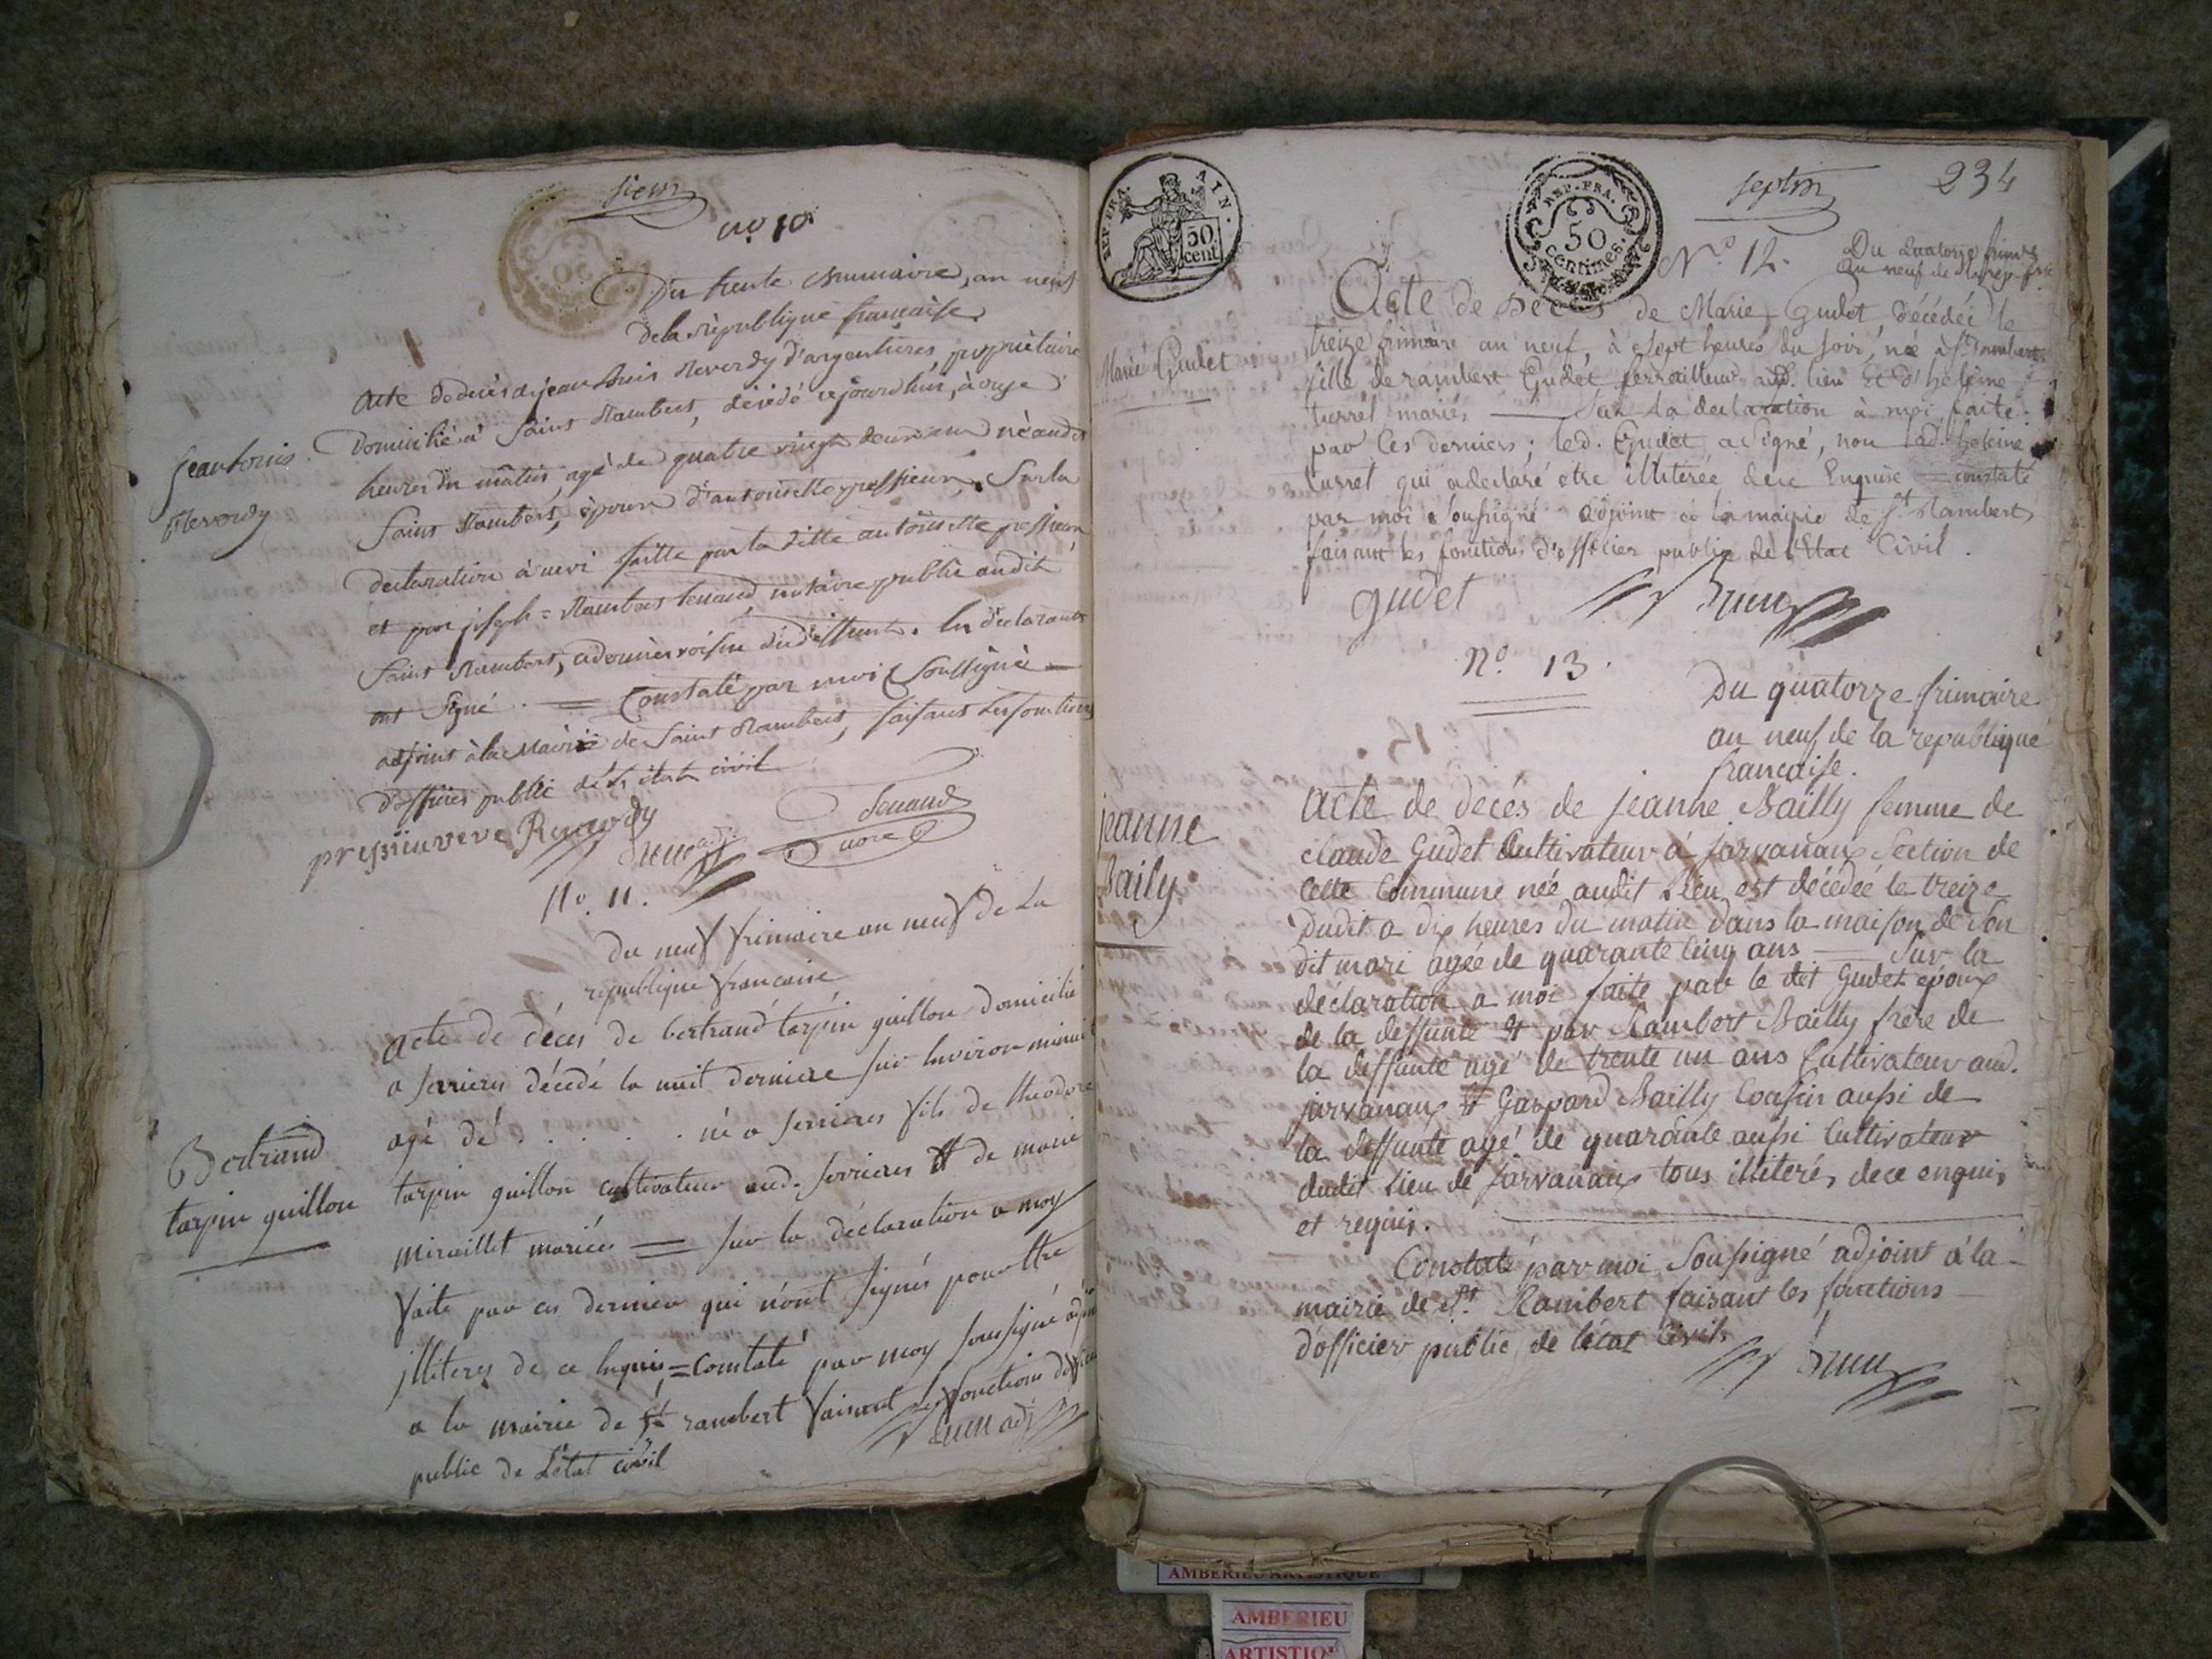 no 10
Du trente brumaire, an neuf
de la république française
acte de décès de jean Louis Reverdy d'argentieres, propriétaire
Domicilié à Saint Rambert, décédé cejourd'hui, à onze
heures du mâtin, agé de quatre vingt deux ans né audit
Saint Rambert, époux d'antoinette pressieux. Sur la
declaration à moi faitte par la ditte antoinette pressieux
et par joseph = Rambert tenand notaire public audit
Saint Rambert, voisin du deffunt. les déclarants
ont Signé = Constaté par moi Soussigné
adjoint à la Mairie de Saint Rambert, faisant les fonctions
d'officier public de l'état civil
Jean Louis
Reverdy
Reverdy
Tenand
nore
No. 11.
Du neuf frimaire an neuf de La
republique francaise
acte de décés de bertrand tarpin guillon domicilié
a serrieres décedé la nuit derniere sur lenviron minuit
agé dé . . . . . né a serrieres fils de theodore
tarpin guillon cultivateur aud. serrieres et de marie
miraillet mariés = sur la déclaration a moy
faite par ces dernier qui n'ont signés pour ttre
illiteres de ce Enquis = Constaté par moy soussigné adjoint
a la mairie de St rambert faisant les fonctions dofficier
public de L'état civil
Bertrand
tarpin guillon
REP. FRA.
AIN.
50
cent
REP. FRA.
50
Centimes.
septm
234
No. 12.
Du Quatorze frimre
an neuf de la rep. frse
Acte de Décès de Marie Gudet décédée le
treize frimaire an neuf, à sept heures du soir, née à St rambert
fille de rambert Gudet ferrailleur aud. lieu Et d'helêine
turrel mariés — Sur la declaration à moi faite
par ces derniers; led. Gudet a signé, non lad. heleine
turrel qui a declaré etre illiterée dece Enquise = constaté
par moi soussigné adjoint a la mairie de St. Rambert
faisant les fonctions d'officier public de l'Etat Civil.
Marie Gudet
gudet
No. 13.
Du quatorze frimaire
an neuf de la republique
francaise.
Acte de decés de jeanne Bailly femme de
claude Gudet Cultivateur á javanaux Section de
Cette Commune née audit Lieu est décédeé le treize
Dudit a dix heures du matin dans la maison de son
dit mari agée de quarante Cinq ans — Sur la
déclaration a moi faite par le dit Gudet epoux
de la deffunte et par Rambert Bailly frere de
la deffunte agé de trente un ans Cultivateur aud.
javanaux et Gaspard Bailly Cousin aussi de
la deffunte agé de quarante aussi Cultivateur
dudit Lieu de javanaux tous illiterés, dece enquis
et requis.
Constaté par moi Soussigné adjoint á la
mairie de St. Rambert faisant les fonctions
d'officier public de l'état Civil.
jeanne
Baily
AMBERIEU ARTISTIQUE
AMBERIEU
ARTISTIQU